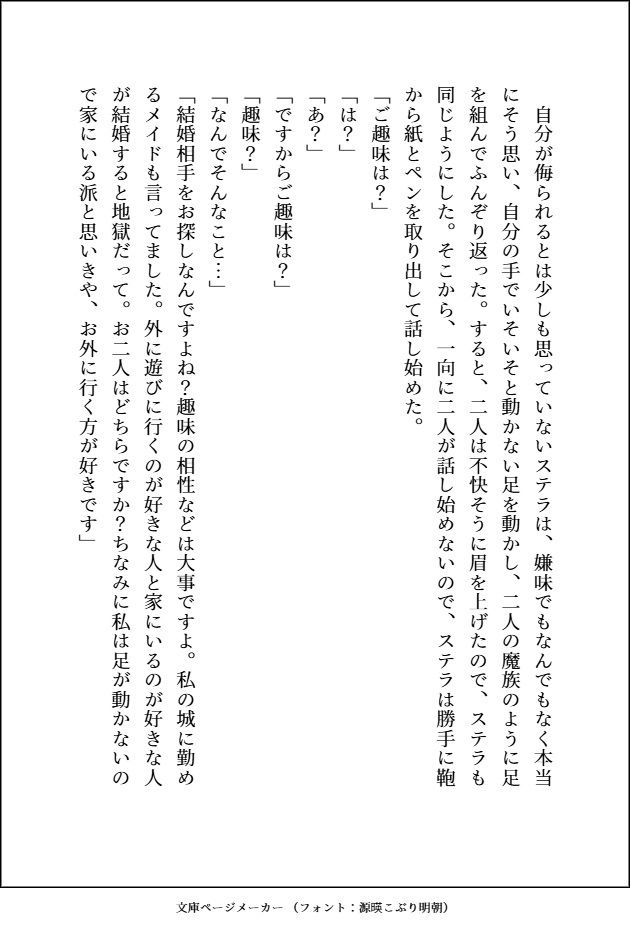 自分が侮られるとは少しも思っていないステラは、嫌味でもなんでもなく本当
にそう思い、自分の手でいそいそと動かない足を動かし、二人の魔族のように足
を組んでふんぞり返った。すると、二人は不快そうに眉を上げたので、ステラも
同じようにした。そこから、一向に二人が話し始めないので、ステラは勝手に鞄
から紙とペンを取り出して話し始めた。
「ご趣味は？」
「は？」
「あ？」
「ですからご趣味は？」
「趣味？」
「なんでそんなこと…」
「結婚相手をお探しなんですよね？趣味の相性などは大事ですよ。私の城に勤め
るメイドも言ってました。外に遊びに行くのが好きな人と家にいるのが好きな人
が結婚すると地獄だって。お二人はどちらですか？ちなみに私は足が動かないの
で家にいる派と思いきや、お外に行く方が好きです」
文庫ページメーカー（フォント：源暎こぶり明朝）